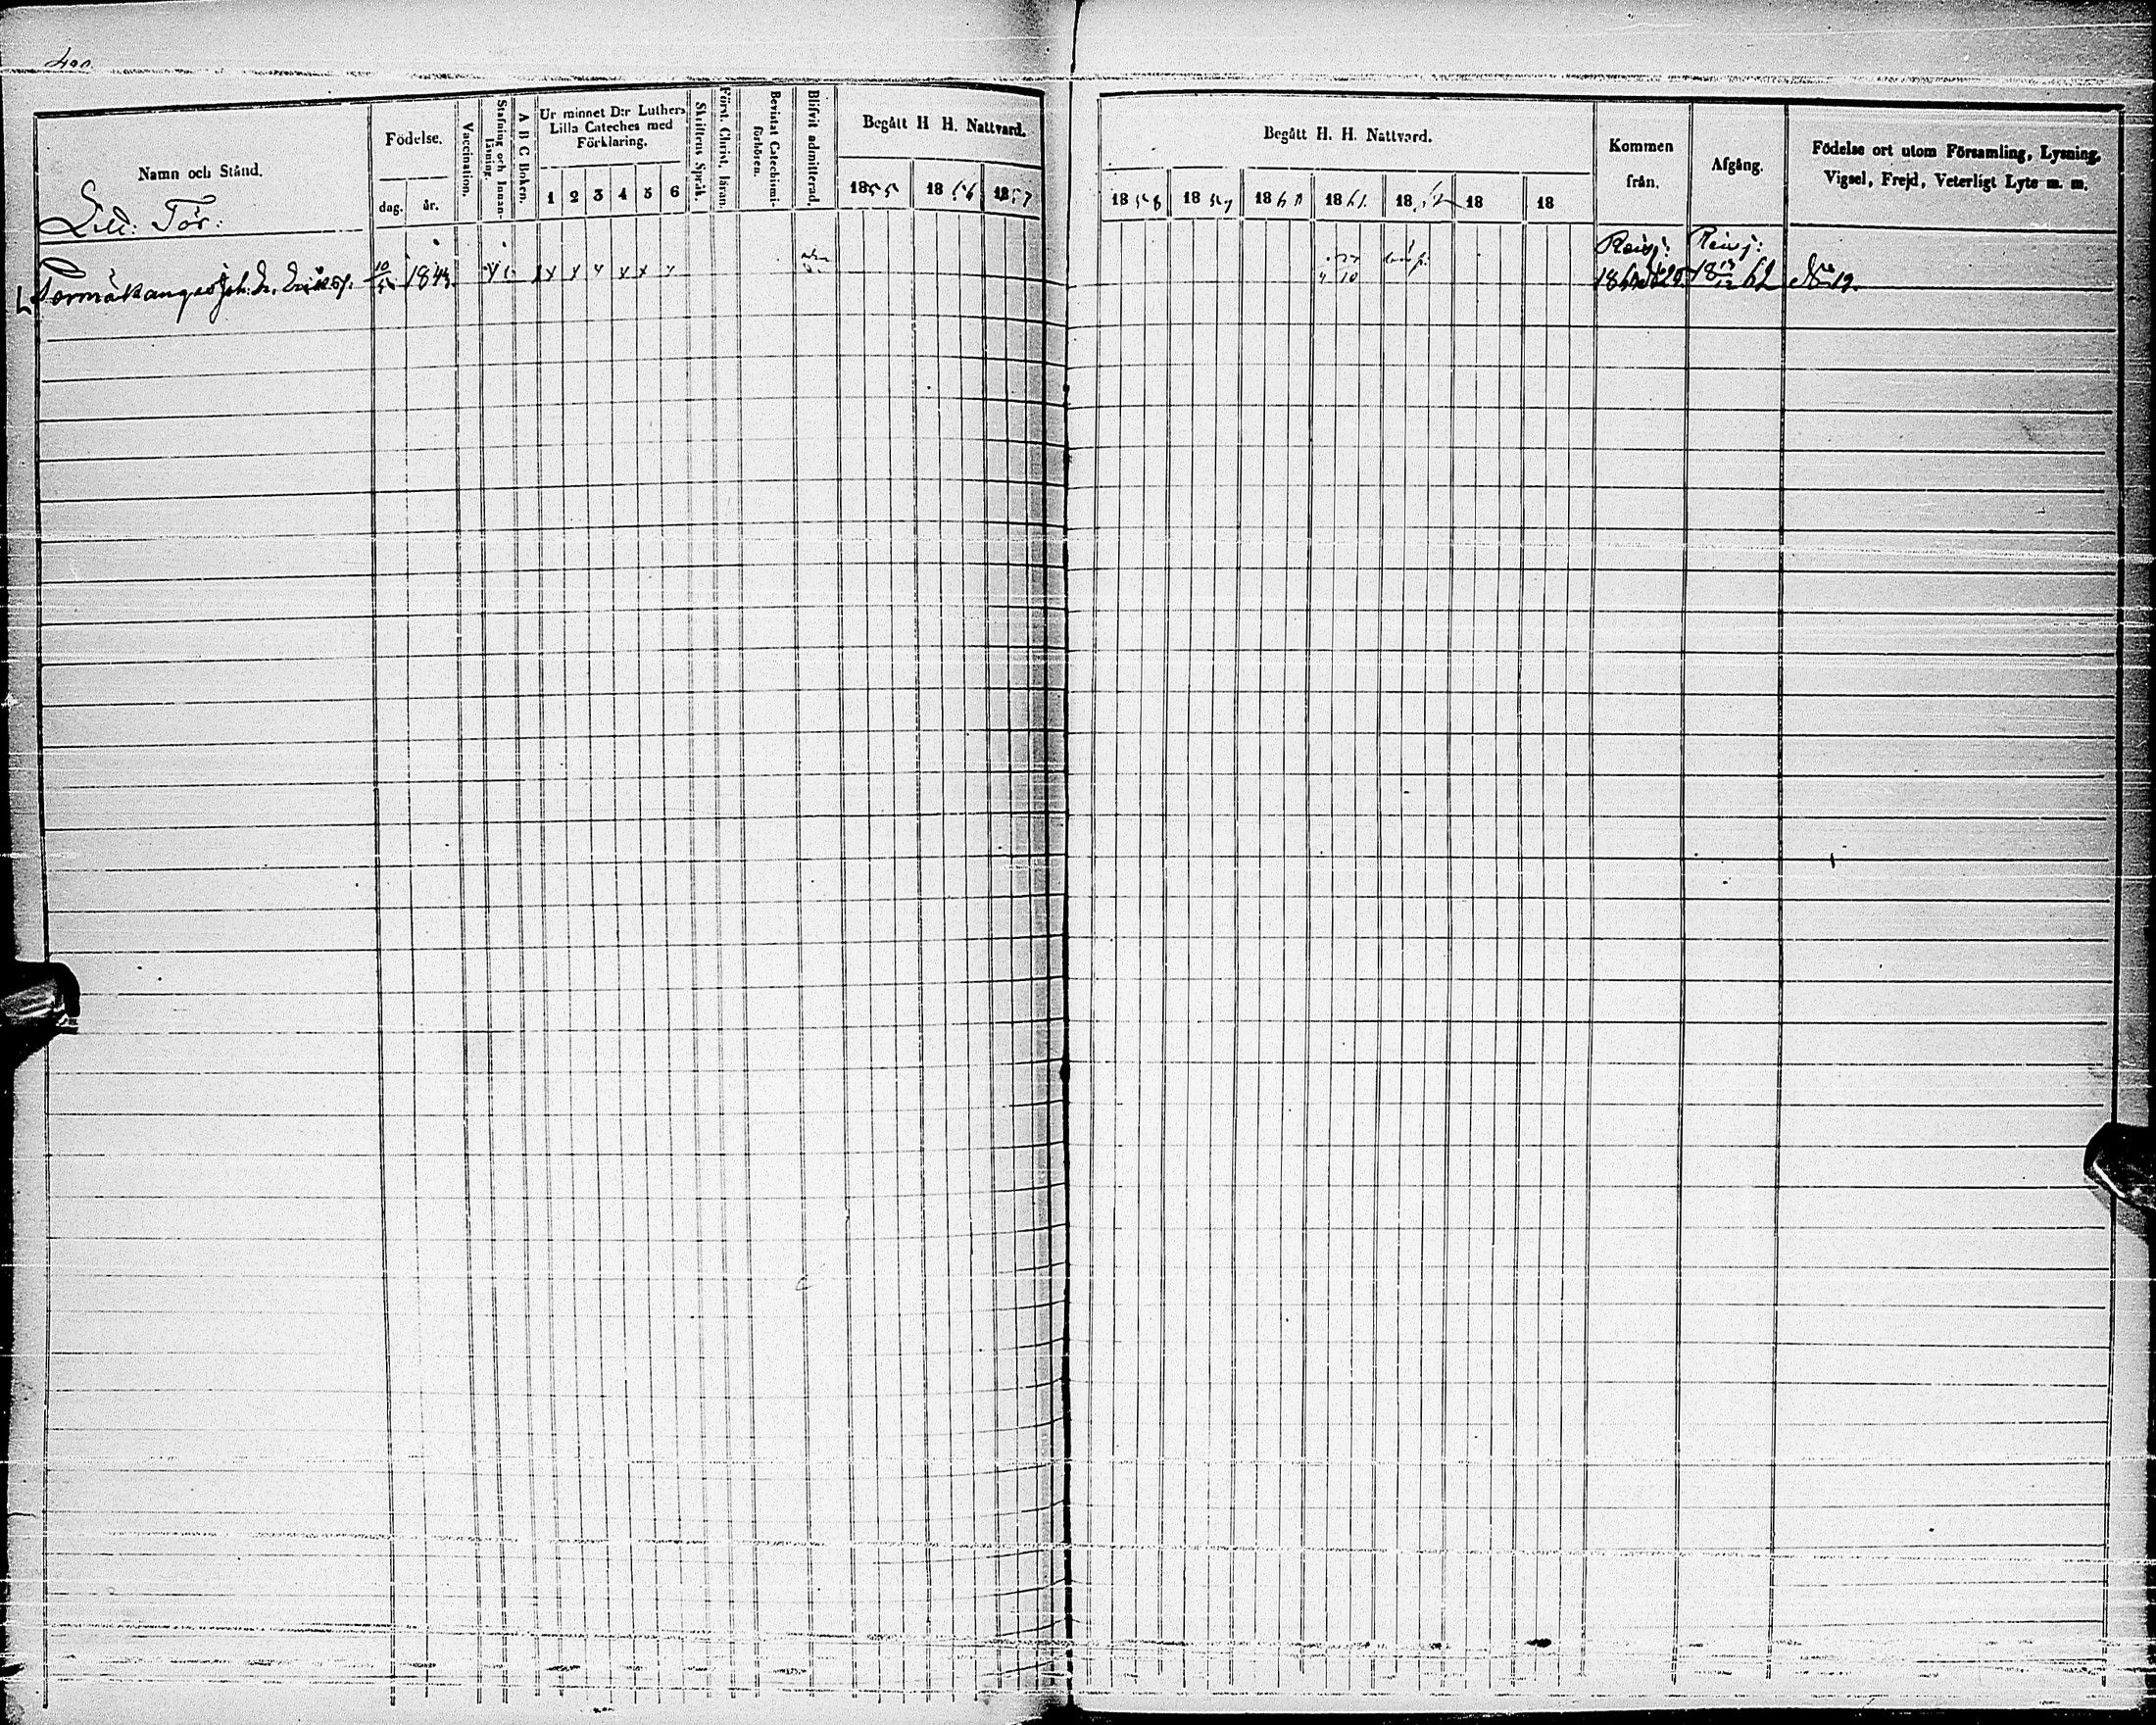 Namn och Stånd.
Födelse.
dag.
år.
Vaccination.
Stafning och Innan-
läsning.
A B C Boken.
Ur minnet D:r Luthers
Lilla Cateches med
Förklaring.
1 2 3 4 5 6
Skriftens Språk.
Först. Christ. läran.
Bevistat Catechismi-
förhören.
Blifvit admitterad.
Begått H H. Nattvard.
1855 1856 1857
Begått H. H. Nattvard.
1858 1859 1860 1861 1862 18 18
Kommen
från.
Afgång.
Födelse ort utom Församling, Lysning,
Vigsel, Frejd, Veterligt Lyte m. m.
Tör:
Reisj: Reisj:
10/5 1843 x x x x x x 10 18 62 No 12.